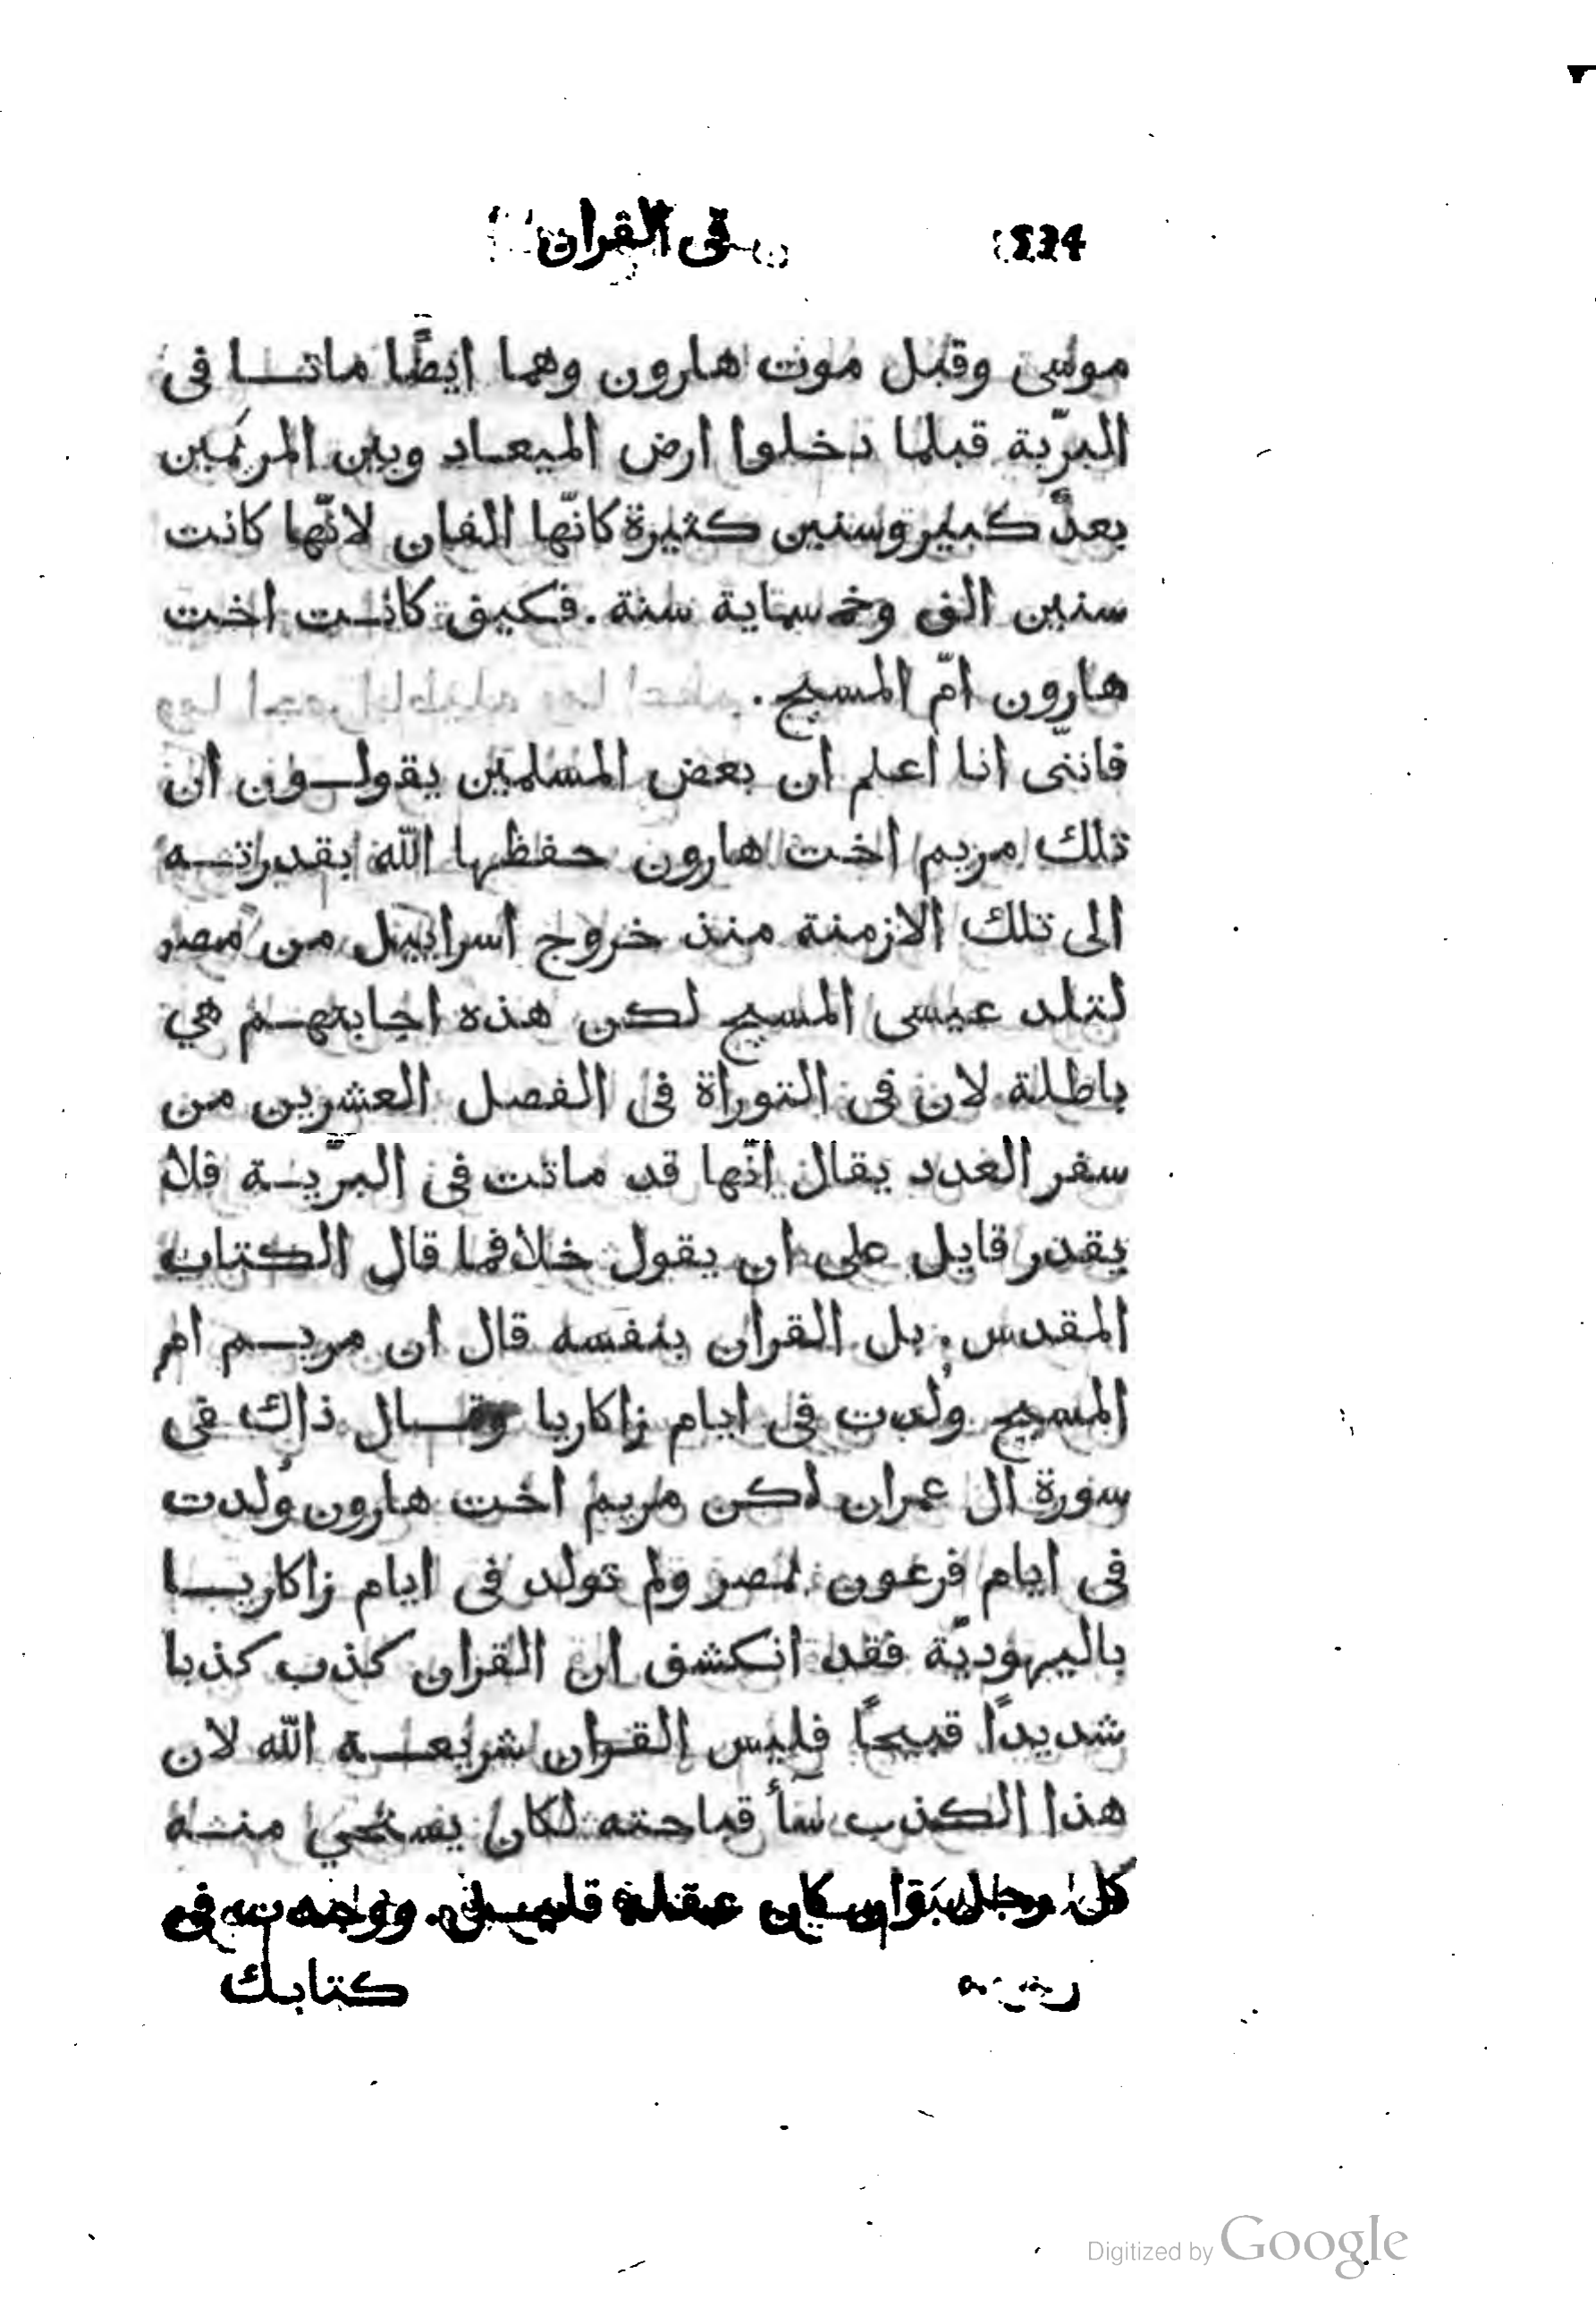 534 في القران
موسى وقبل موت هارون وهما ايضًا ماتا فى
البرّية قبلما دخلوا ارض الميعاد وبين المريمَين
بعدٌ كبير وسنين كثيرة كانّها الفان لانّها كانت
سنين الف وخمسماية سنة . فكيف كانت اخت
هارون امّ المسيح .
فاننّى انا اعلم ان بعض المسلمين يقولون ان
تلك مريم اخت هارون حفظها اللّه بقدراته
الى تلك الازمنة منذ خروج اسراييل من مصر
لتلد عيسى المسيح لكن هذه اجابتهم هي
باطلة لان فى التوراة فى الفصل العشرين من
سفر العدد يقال انّها قد ماتت فى البرّية فلا
يقدر قايل على ان يقول خلاف ما قال الكتاب
المقدس . بل القران بنفسه قال ان مريم ام
المسيح وُلدت فى ايام زاكاريا وقال ذاك فى
سورة ال عمران لكن مريم اخت هارون وُلدت
فى ايام فرعون لمصر ولم تولد فى ايام زاكاريا
باليهوديّة فقد انكشف ان القران كذب كذبا
شديدًا قبيحًا فليس القران شريعة اللّه لان
هذا الكذب قباحته لكان يستحي منه
كل رجل كان عقله فى
كتابك
Digitized by Google